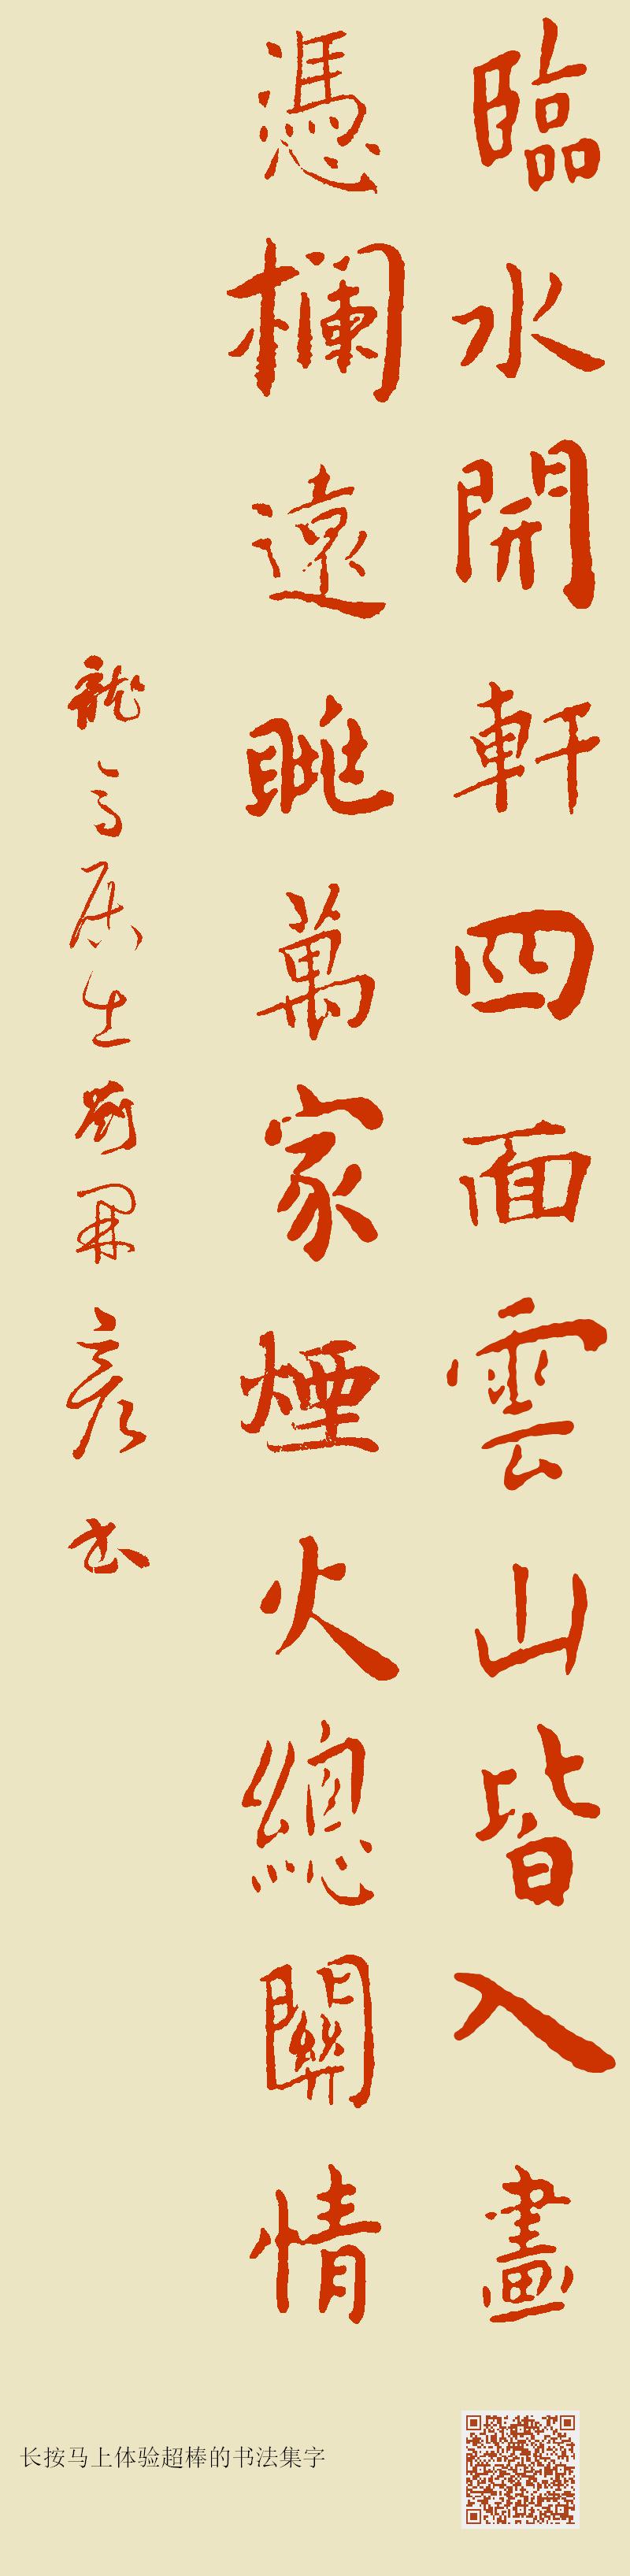 臨水開軒四面雲山皆入畫
憑欄遠眺萬家煙火總關情
龍居生劉開彥書
长按马上体验超棒的书法集字